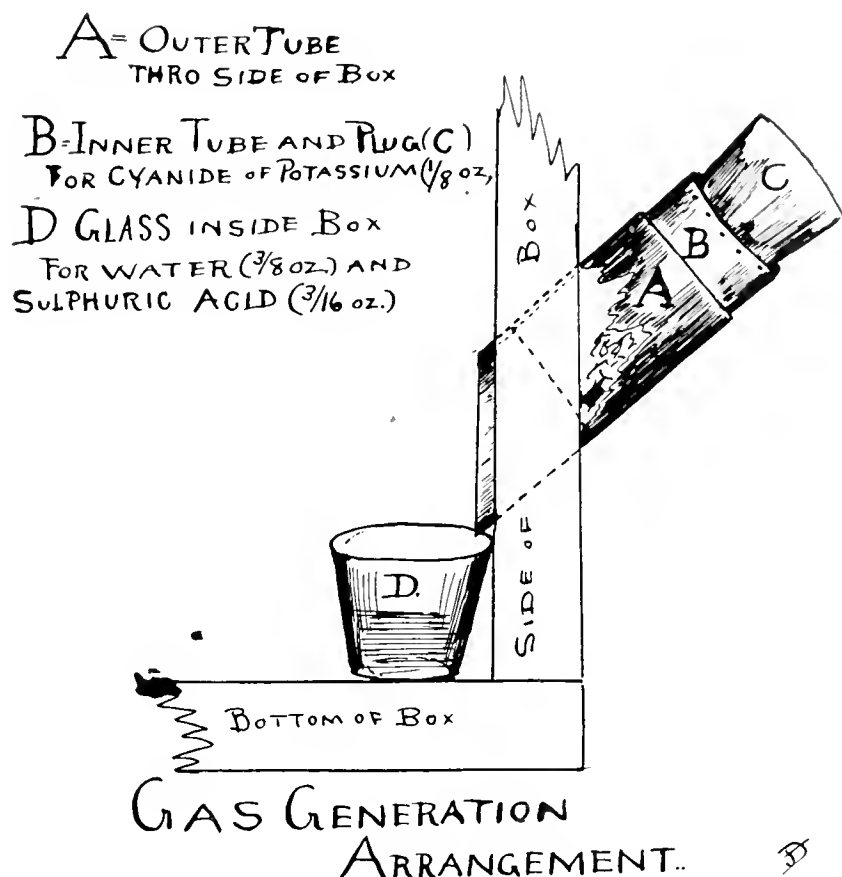 A = OUTER TUBE
THRO SIDE OF BOX
B = INNER TUBE AND PLUG (C)
FOR CYANIDE OF POTASSIUM (1/8 OZ,
D GLASS INSIDE BOX
FOR WATER (3/8 OZ.) AND
SULPHURIC ACID (3/16 OZ.)
BOX
C
B
A
SIDE OF
D.
BOTTOM OF BOX
GAS GENERATION
ARRANGEMENT..